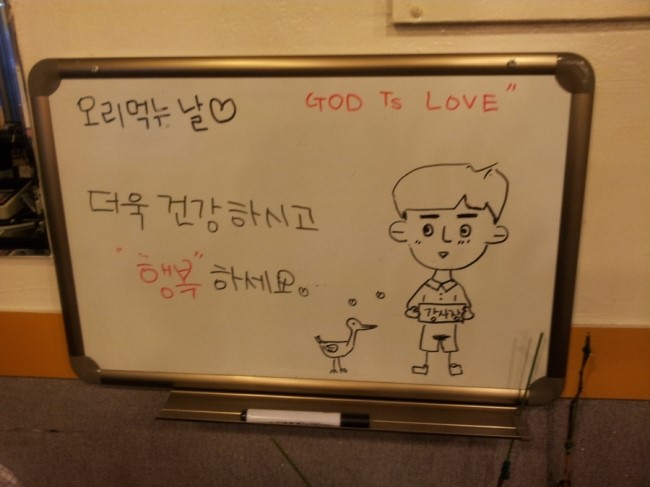 오리먹는날♡
GOD Ts LOVE"
더욱 건강하시고
"행복" 하세요.
감사랑